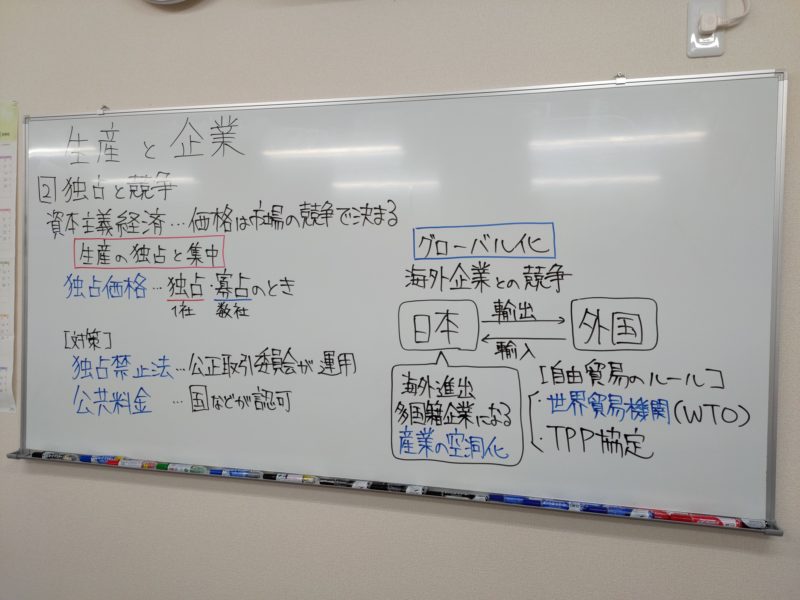 生産と企業
2 独占と競争
資本主義経済…価格は市場の競争で決まる
生産の独占と集中
独占価格…独占・寡占のとき
1社 数社
[対策]
独占禁止法…公正取引委員会が運用
公共料金 …国などが認可
グローバル化
海外企業との競争
日本 輸出 外国
輸入
海外進出
多国籍企業になる
産業の空洞化
[自由貿易のルール]
・世界貿易機関(WTO)
・TPP協定